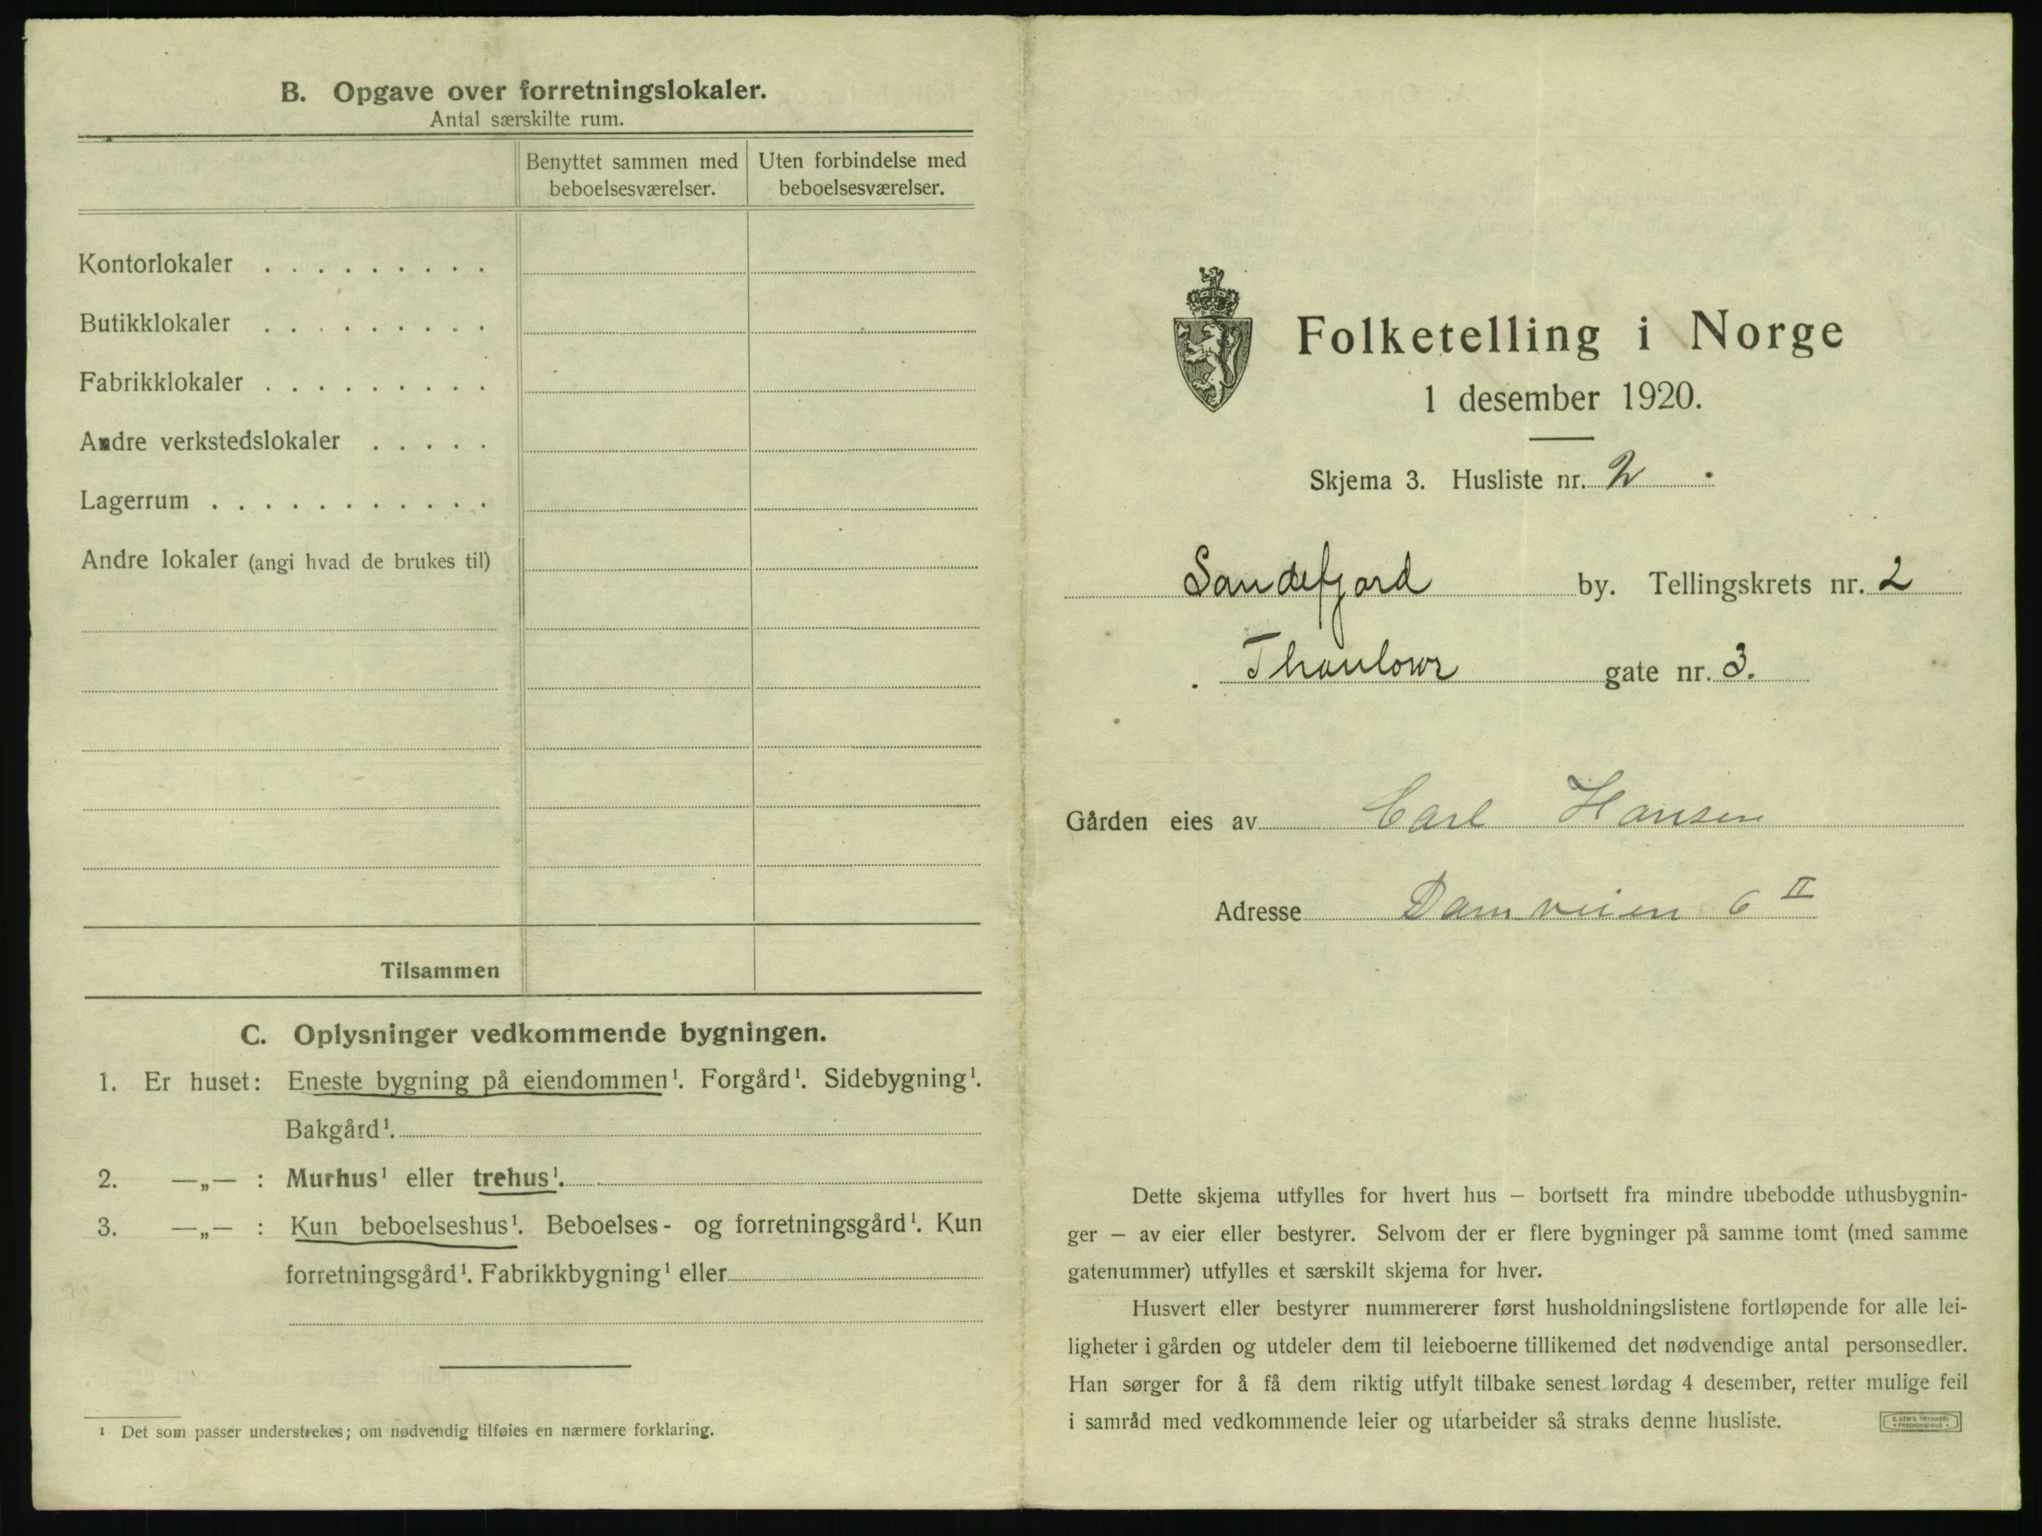 B. Opgave over forretningslokaler.
Antal særskilte rum.
Benyttet sammen med beboelsesværelser.
Uten forbindelse med beboelsesværelser.
Kontorlokaler . . . . . . . . .
Butikklokaler . . . . . . . . .
Fabrikklokaler . . . . . . . . .
Andre verkstedslokaler . . . . .
Lagerrum . . . . . . . . . . .
Andre lokaler (angi hvad de brukes til)
Tilsammen
C. Oplysninger vedkommende bygningen.
1. Er huset: Eneste bygning på eiendommen¹. Forgård¹. Sidebygning¹.
Bakgård¹.
2. —„— : Murhus¹ eller trehus¹.
3. —„— : Kun beboelseshus¹. Beboelses- og forretningsgård¹. Kun
forretningsgård¹. Fabrikkbygning¹ eller
¹ Det som passer understrekes; om nødvendig tilføies en nærmere forklaring.
Folketelling i Norge
1 desember 1920.
Skjema 3. Husliste nr. 2
Sandefjord by. Tellingskrets nr. 2
Thaulows gate nr. 3.
Gården eies av Carl Hansen
Adresse Damveien 6 II
Dette skjema utfylles for hvert hus – bortsett fra mindre ubebodde uthusbygnin-
ger – av eier eller bestyrer. Selvom der er flere bygninger på samme tomt (med samme
gatenummer) utfylles et særskilt skjema for hver.
Husvert eller bestyrer nummererer først husholdningslistene fortløpende for alle lei-
ligheter i gården og utdeler dem til leieboerne tillikemed det nødvendige antal personsedler.
Han sørger for å få dem riktig utfylt tilbake senest lørdag 4 desember, retter mulige feil
i samråd med vedkommende leier og utarbeider så straks denne husliste.